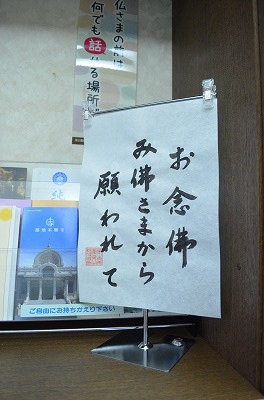 お念佛
み佛さまから
願われて
仏さまの前は
何でも話せる場所
築地本願寺
ご自由にお持ちかえり下さい